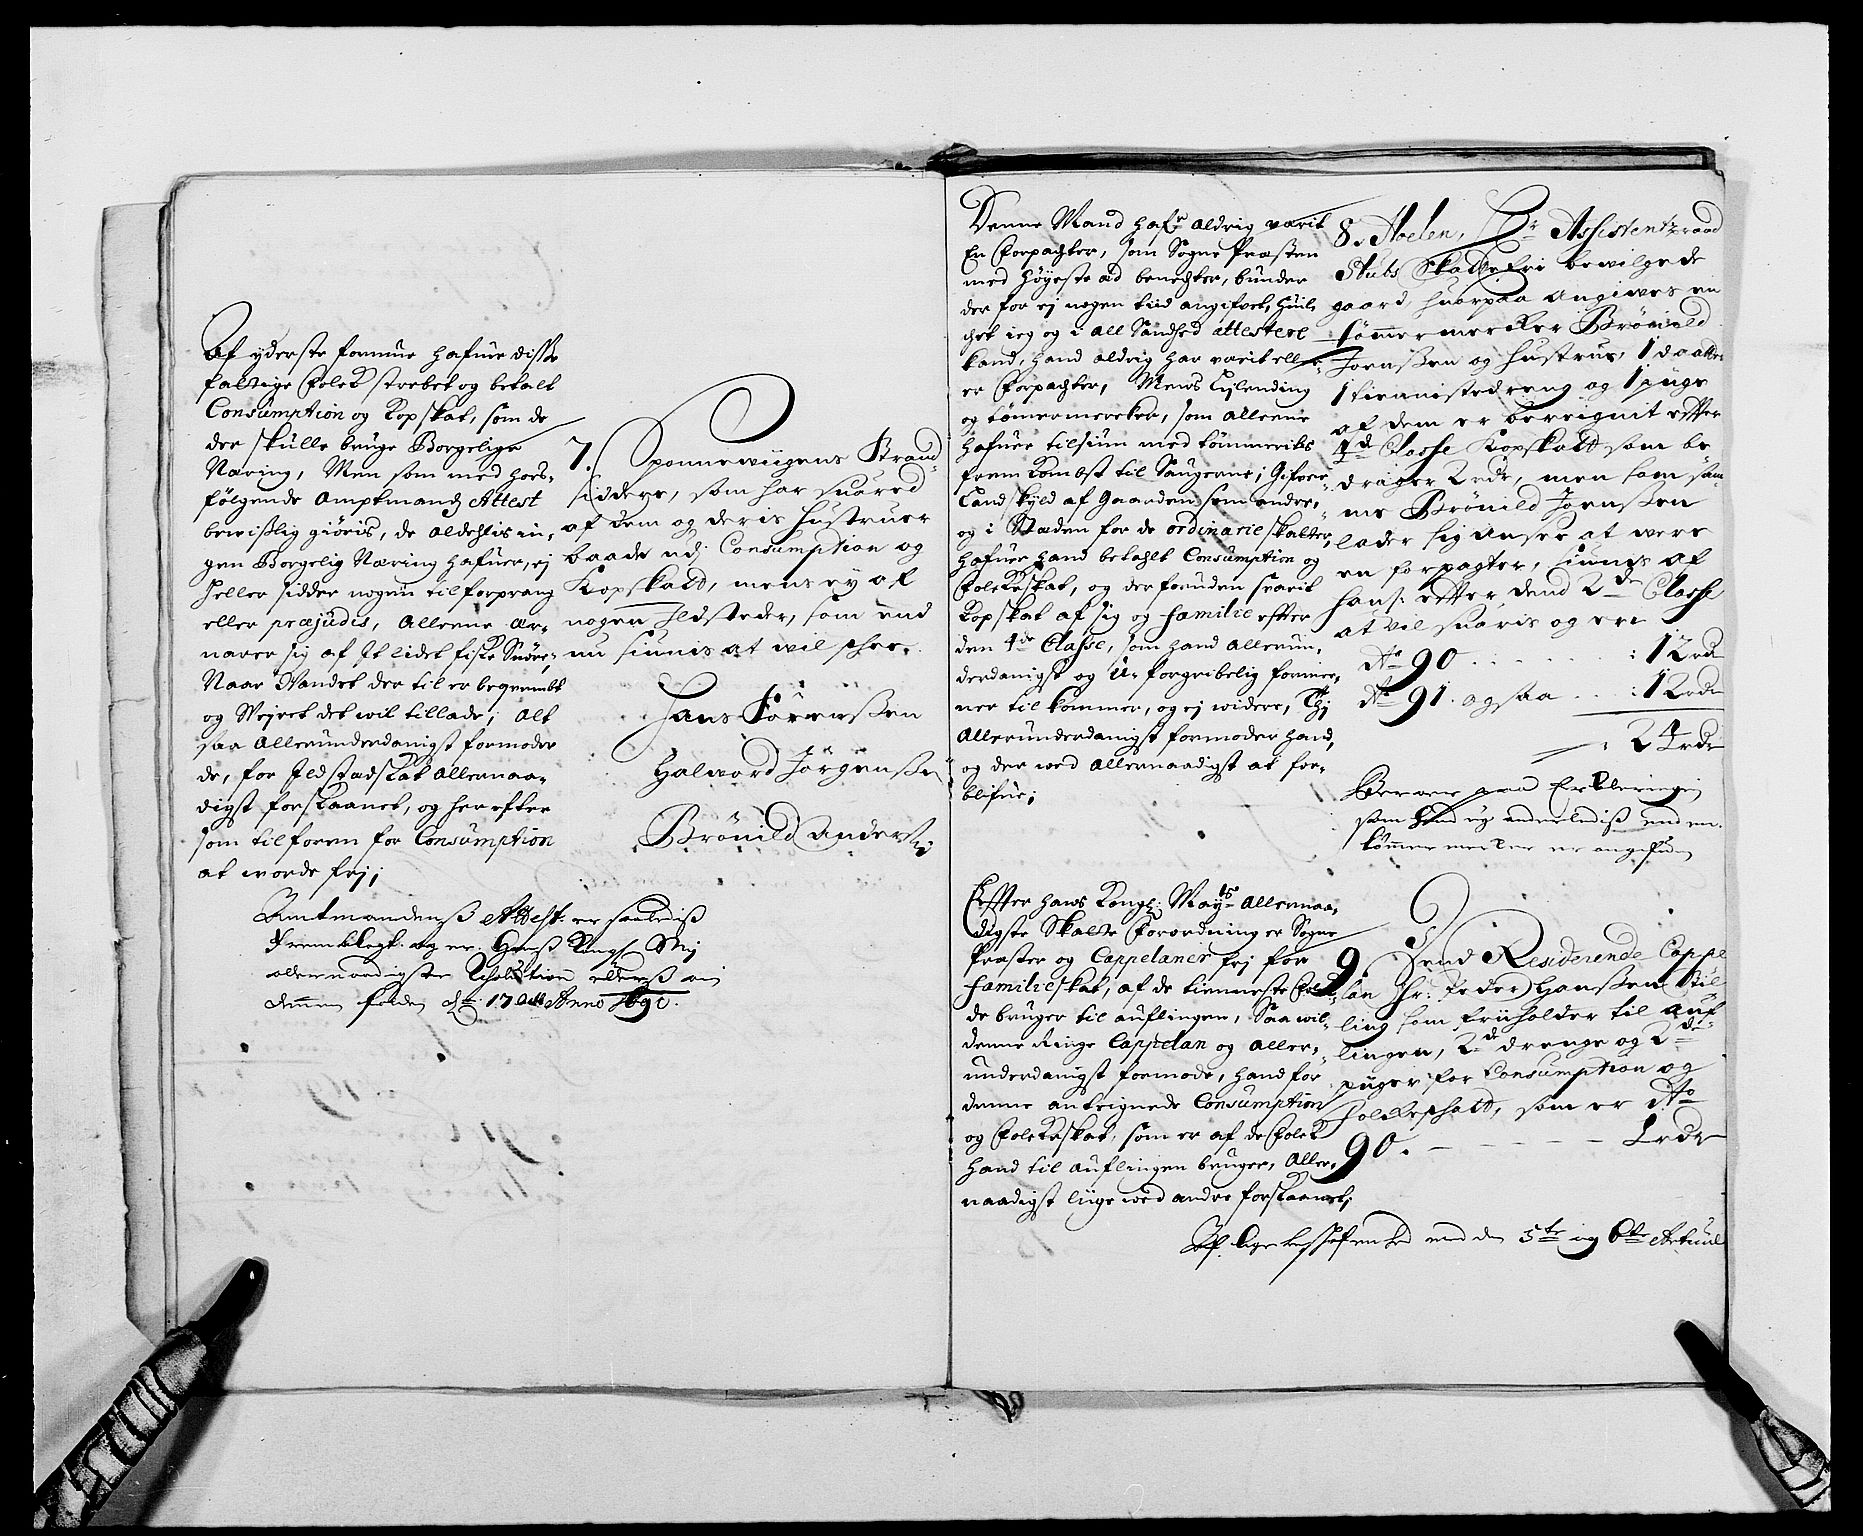 Af yderste formue hafuer disse
fattige Folck strebet og betalt
Consumption og Kopskat, som de
der skulle bruge Borgelige
Næring, Men som med hoes-
følgende Amptmandz Attest
bevißlig giöris, de aldehlis in-
gen Borgelig Næring hafuer, ej
heller sidder nogen til forprang
eller præjudis, Alleene er-
nærer sig af It lidet fiske Snöre,
Naar Vandet der til er beqvembt
og Vejret det wil tillade, alt
saa allerunderdanigst formoder
de, for Ildstædskat allernaa-
digst forskaanet, og her efter
som tilforen for Consumption
at worde frj;
Amtmandenß Attest er saaledis
fremblagt og er Hanß Kongl. May
allernaadigste Resolution
den 17 Anno 1690.
7. Sponnewiigens Strand
siddere, som har suared
af dem og deris hustruer
baade udj Consumption og
Kopskatt, mens ey af
nogen Ildsteder, som end
nu siunis at wil schee.
Hans Sörenßen
Halword Jörgenßen
Brönild Anderß:
Denne Mand hafr aldrig varit
En Forpachter, som Sogne Præsten
med höyeste æd benechter, bunder
der for ej nogen tiid angifvet, huil-
chet ieg og i all Sandhed attestere
kand, hand aldrig har varit eller
er Forpachter, Mens Tislending
og tömermercker, som alleene
hafuer tilsiun med tömmerets
frem Kombst til Saugerne; Gifver
Land skyld af Gaarden som andre,
og i Stæden for de ordinarie skatter,
hafuer hand betahlt Consumption og
Folckeskat, og der foruden svarit
Kopskat af sig og familie efter
den 4de Classe, som hand allerun-
derdanigst og U-forgribelig formee-
ner til kommer, og ej widere, Thj
Allerunderdanigst formoder hand,
og der ved allernaadigst at for-
blifue;
8. Hoelen, Hr Assistentzraad
Stubs Skattefri bewilgede
gaard huorpaa angives en
tömmermercker Brönild
Jörnßen og hustrue, 1 daatter
1 tienistedreng og 1 pige
af dem er beregnit efter
4de Classe Kopskatt som be
drager 2 rdr, men som sam
me Brönild Jörnßen
lader sig ansee at were
en forpagter, siunis af
hans: efter dend 2den Classe
at vil suaris og er
Ao 90 . . . . . : 12 rdr
Ao 91. ogsaa . . . : 12 rdr
: 24 rdr
Beroer paa Erkleringen
som hand ey anderledis end en
tömmermercker er angifuen
Efter hans Kongl: Mayts Allernaa-
digste Skatte Forordning er Sogne
Præster og Cappelaner frj for
familieskat, af de tienneste Folck
de bruger til auflingen, Saa wil
denne Ringe Cappelan og aller-
underdanigst formode, hand for
denne anteignede Consumption
og Folckeskat, som er af de Folck
hand til auflingen bruger, Aller-
naadigst liige wed andre forskaanet;
9. Dend Residerende Cappe
lan Hr: Peder Hanßen Stil
ling som friiholder til auf
lingen, 2de drenge og 2de
piger for Consumption og
folckeschatt, som er Ao
90. — — — — 1 rdr
med den 5te og 6te Articul